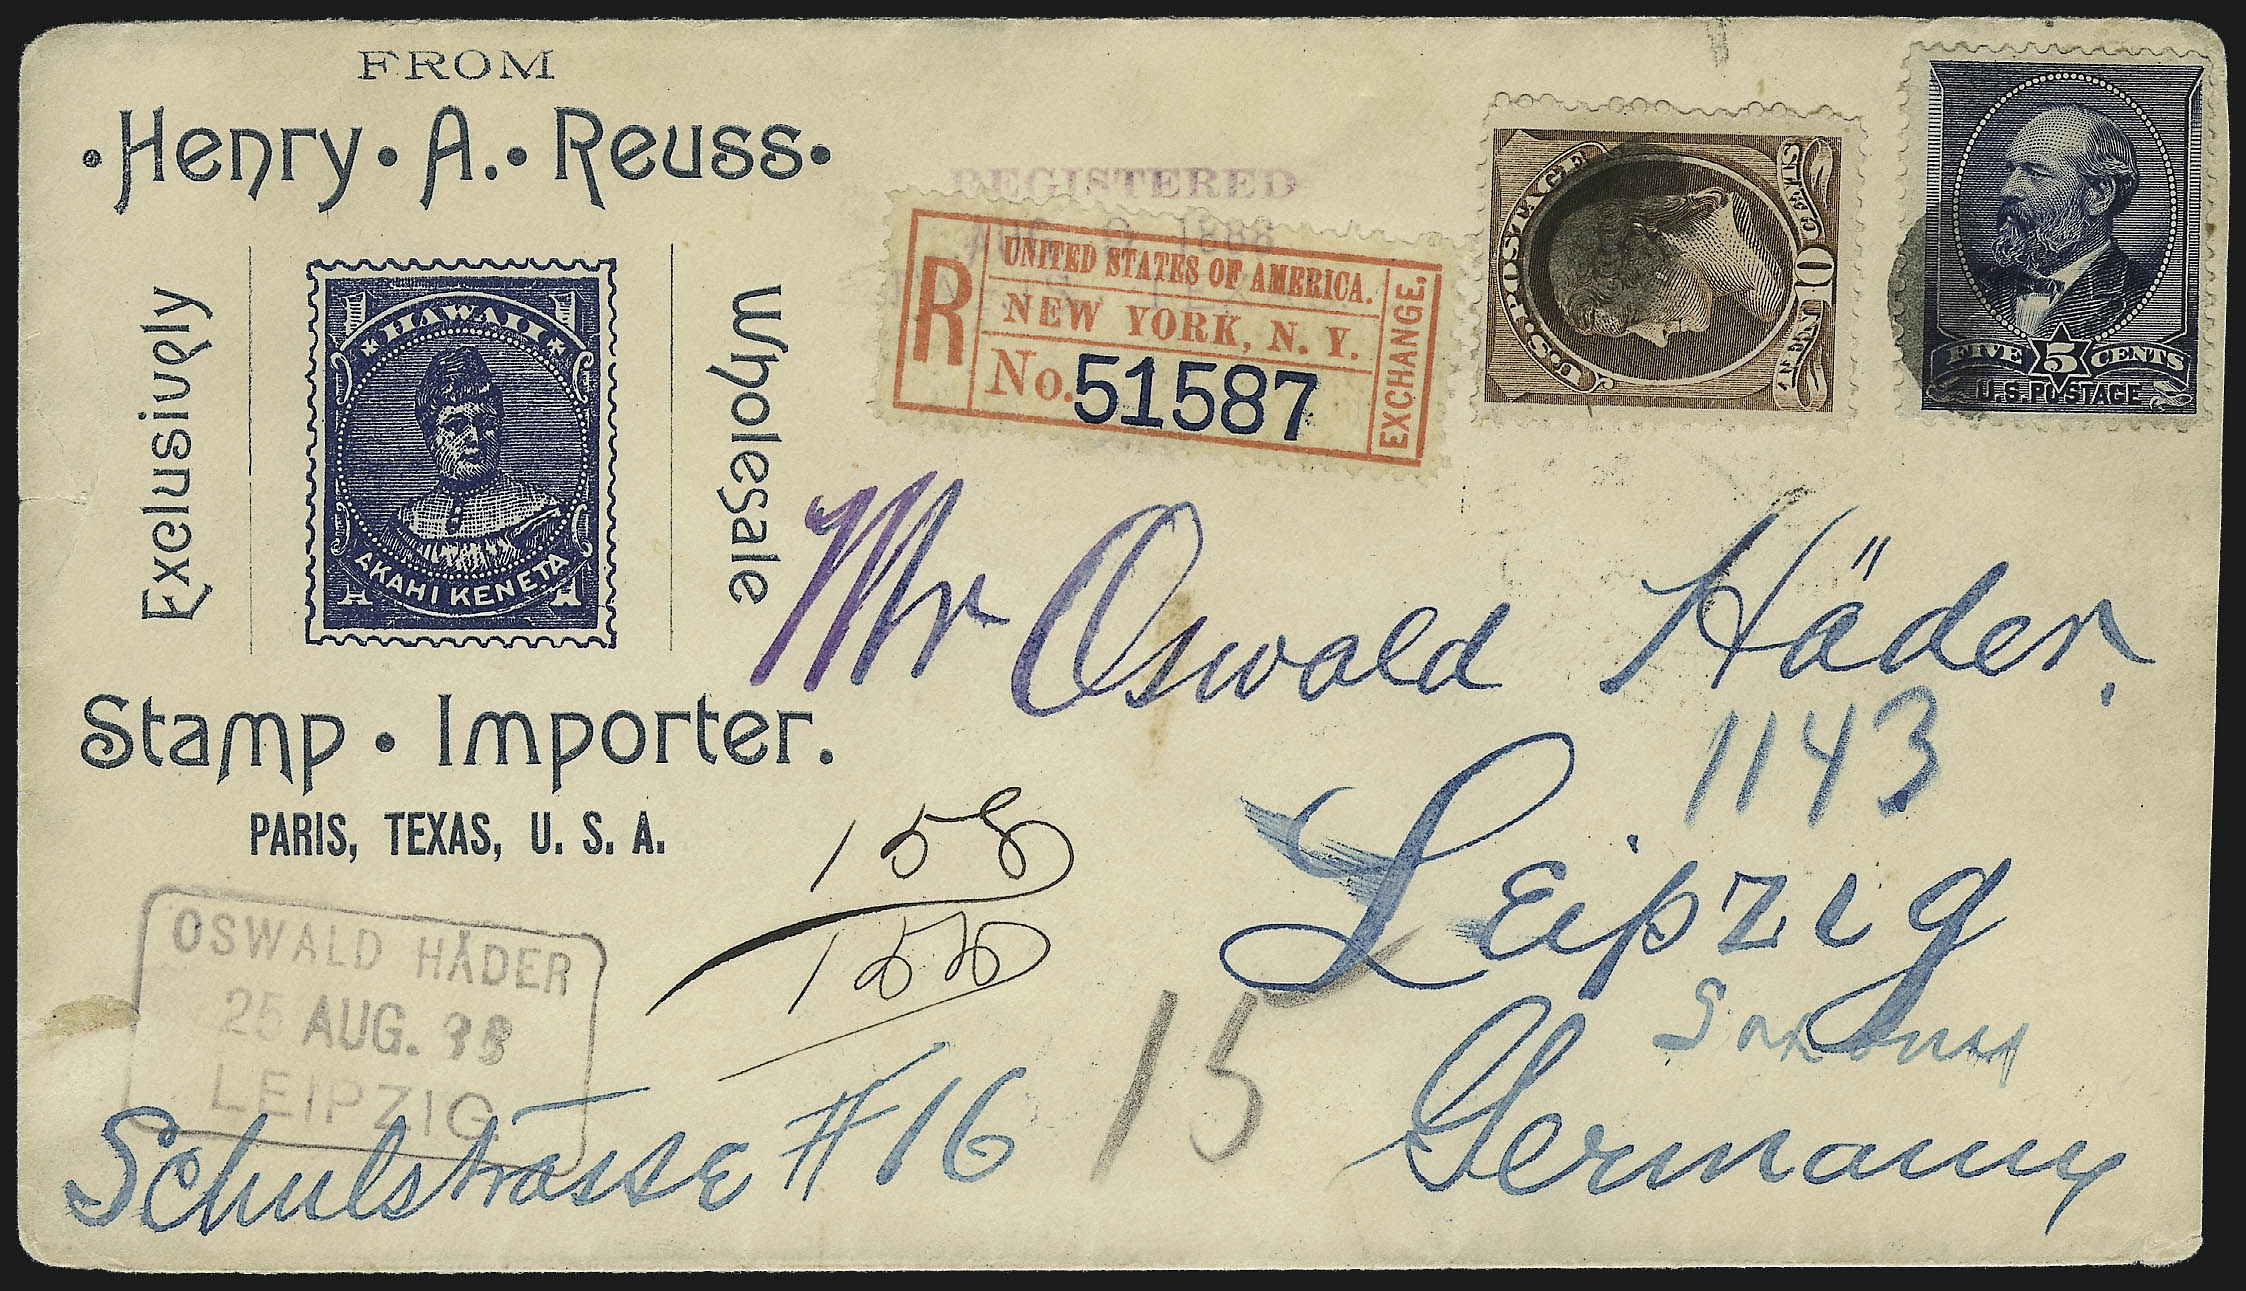 FROM
Henry • A. • Reuss •
Exclusively
Wholesale
1 HAWAII 1
AKAHI KENETA
Stamp • Importer.
PARIS, TEXAS, U. S. A.
REGISTERED
1888
R
UNITED STATES OF AMERICA.
NEW YORK, N. Y.
No. 51587
EXCHANGE.
U.S. POSTAGE
FIVE 5 CENTS
U.S. POSTAGE
Mr Oswald Häder,
1143
Leipzig
Saxony
Germany
158
15
OSWALD HÄDER
25 AUG. 88
LEIPZIG
Schulstrasse # 16